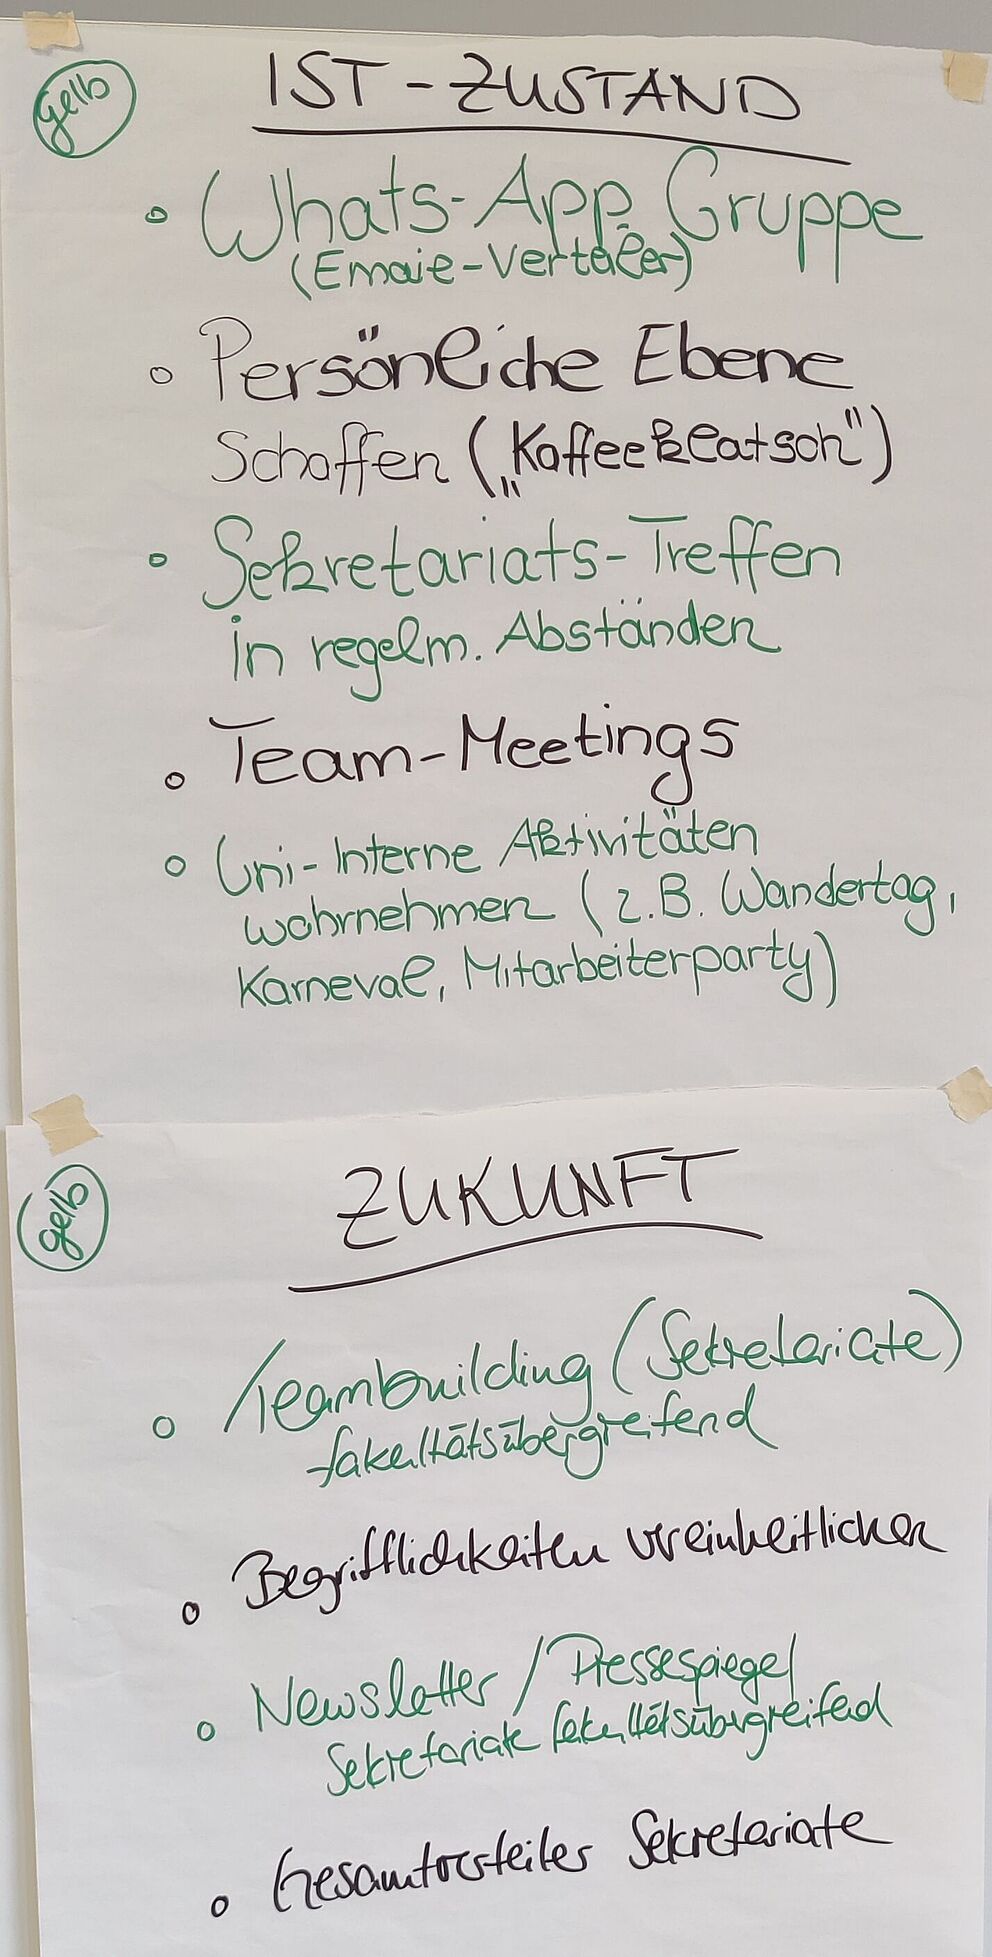 gelb
IST-ZUSTAND
Whats-App Gruppe
(Email-Verteiler)
Persönliche Ebene
Schaffen („Kaffeeklatsch")
Sekretariats-Treffen
in regelm. Abständen
Team-Meetings
Uni-Interne Aktivitäten
wahrnehmen (z.B. Wandertag,
Karneval, Mitarbeiterparty)
gelb
ZUKUNFT
Teambuilding (Sekretariate)
fakultätsübergreifend
Begrifflichkeiten vereinheitlichen
Newsletter / Pressespiegel
Sekretariate fakultätsübergreifend
Gesamtverteiler Sekretariate